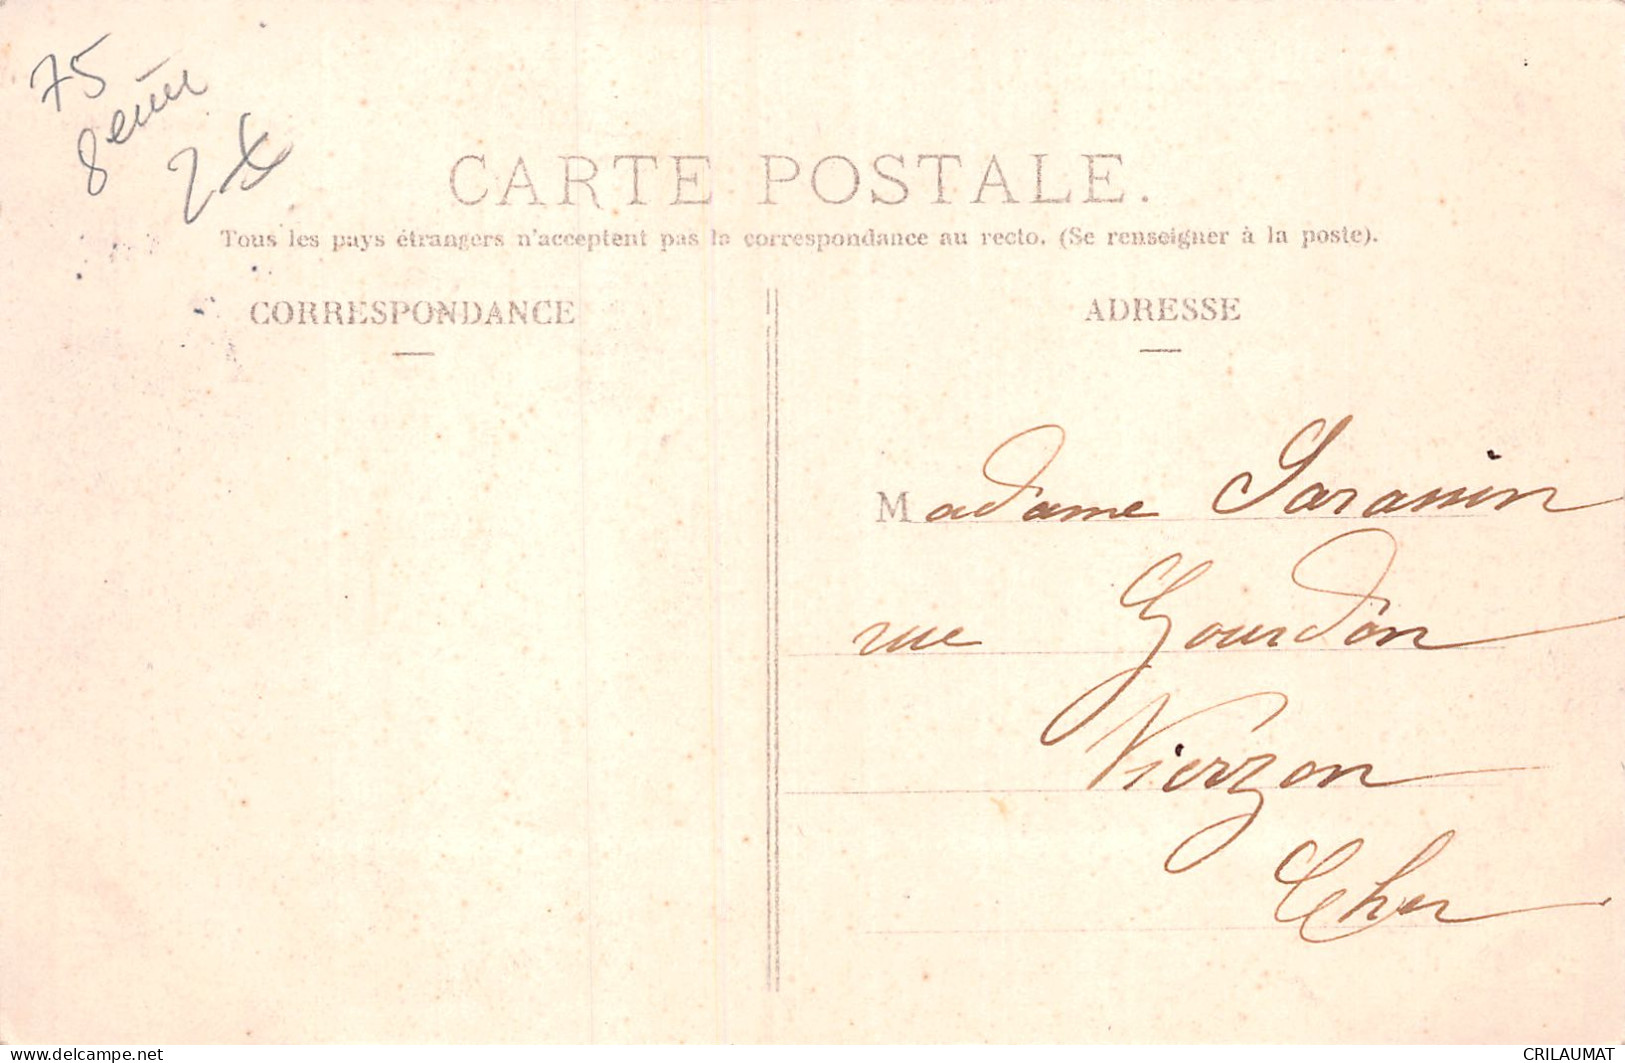 75
8eme
2
CARTE POSTALE.
Tous les pays étrangers n'acceptent pas la correspondance au recto. (Se renseigner à la poste).
CORRESPONDANCE
ADRESSE
Madame Sarassin
rue Gourdon
Vierzon
Cher
www.delcampe.net
CRILAUMAT